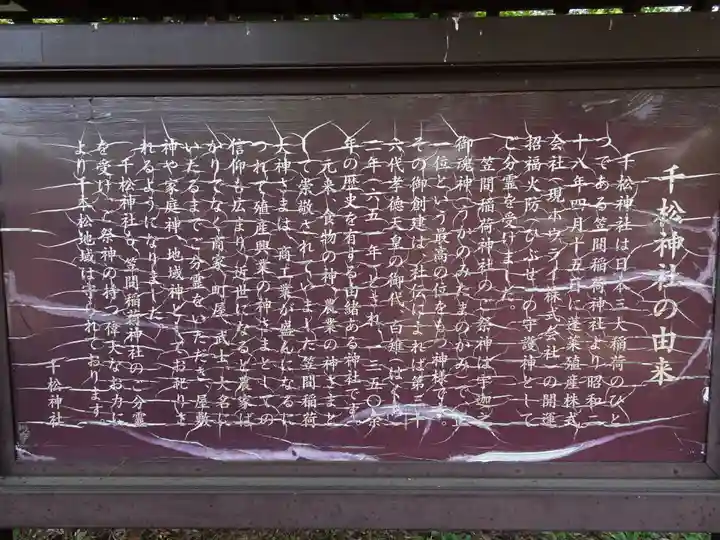 千松神社の由来
千松神社は日本三大稲荷のひと
つである笠間稲荷神社より昭和
十八年四月十五日に蓬莱殖産株式
会社(現ホウライ株式会社)の開運
招福火防(ひぶせ)の守護神として
ご分霊を受けました。
笠間稲荷神社のご祭神は宇迦之
御魂神(うかのみたまのかみ)で正
一位という最高の位をもつ神様です。
その御創建は、社伝によれば第三十
六代孝徳天皇の御代、白雉(はくち)
二年(六五一年)とされ、一三五〇余
年の歴史を有する由緒ある神社です。
元来、食物の神、農業の神さまと
して崇敬されていました笠間稲荷
大神さまは、商工業が盛んになるに
つれて殖産興業の神さまとしての
信仰も広まり、近世になると農家ば
かりでなく商家、町屋、武士、大名に
いたるまでご分霊をいただき、屋敷
神や家庭神、地域神としてお祀りさ
れるようになりました。
千松神社も、笠間稲荷神社のご分霊
を受け、ご祭神の持つ偉大なお力に
より千本松地域は守られております。
千松神社